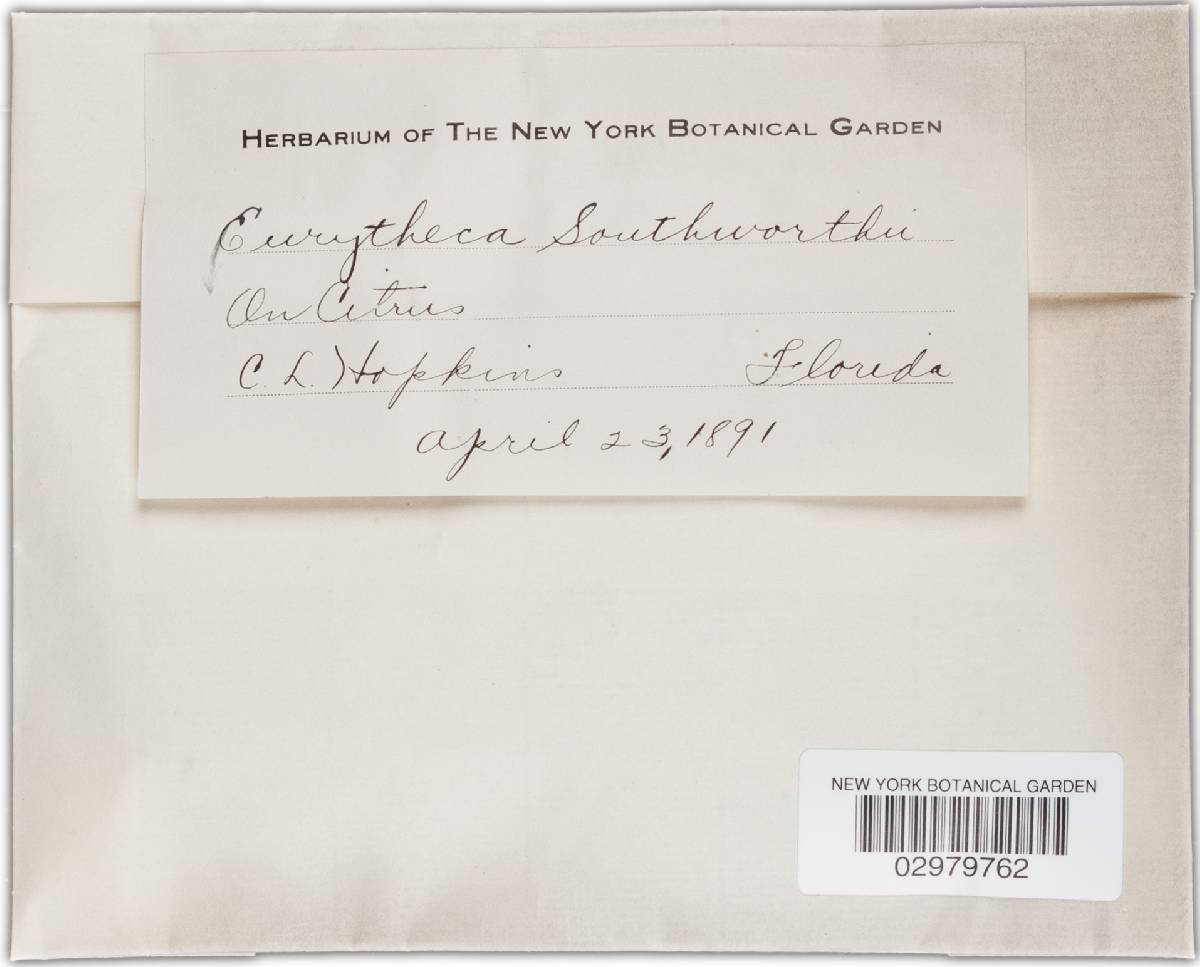 HERBARIUM OF THE NEW YORK BOTANICAL GARDEN
Eurytheca Southworthii
On Citrus
C. L. Hopkins Florida
April 23, 1891
NEW YORK BOTANICAL GARDEN
02979762